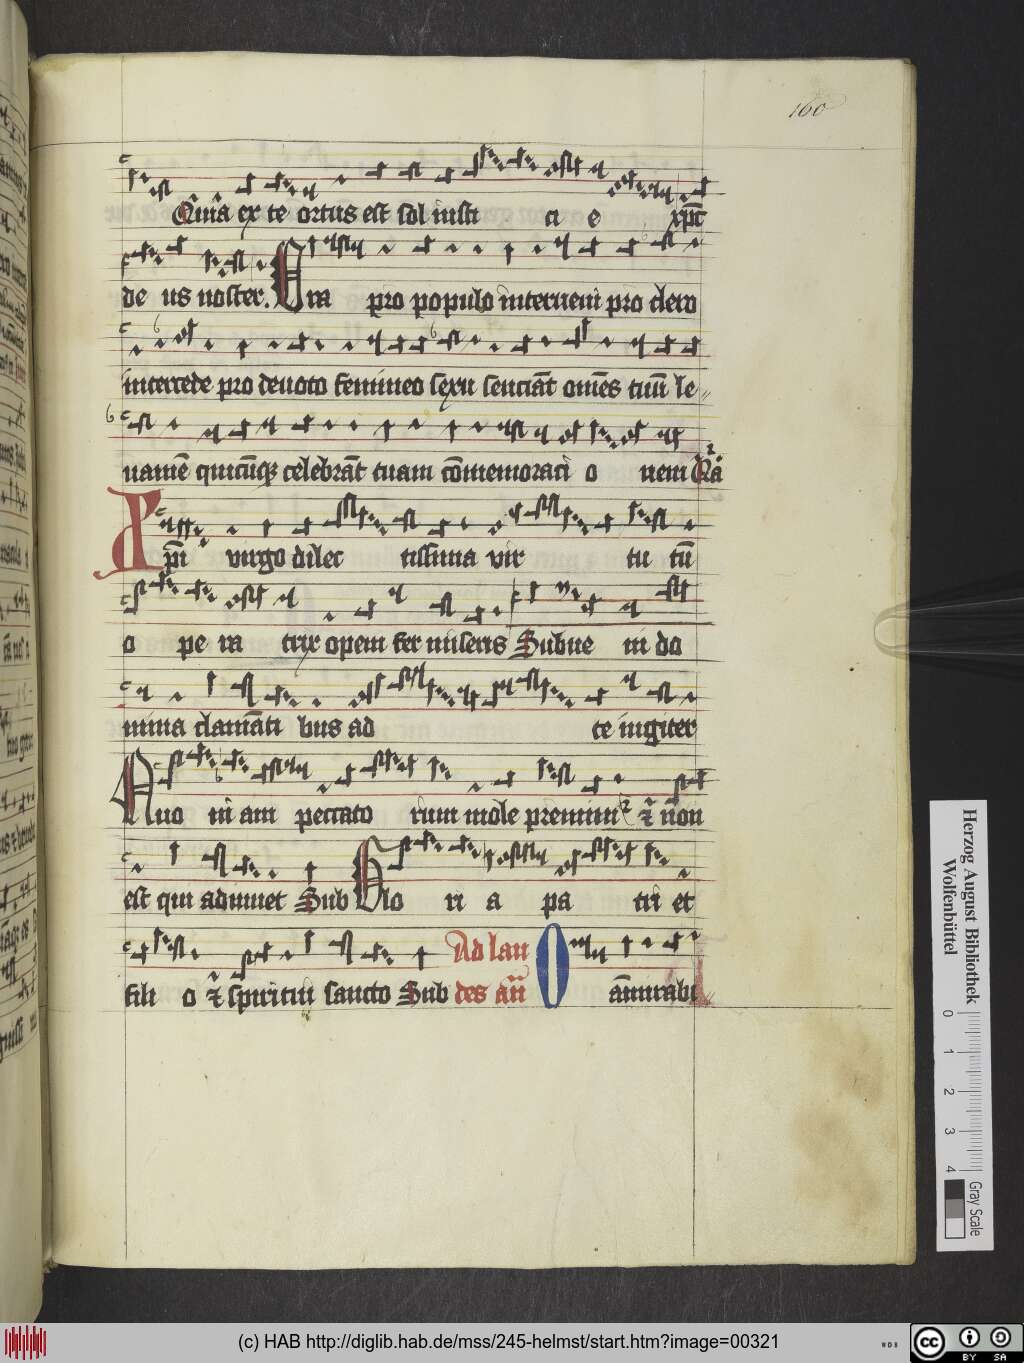 160
Quīa ex te ortus est sol iusti ci e xp̄c
de us noster. Ora pro populo interueni pro clero
intercede pro deuoto femineo sexu senciāt om̄es tuū le
uamē quicūq; celebrāt tuam cōmemoraci o nem Quīa
Xp̄i virgo dilec tissima vir tu tū
o pe ra trix opem fer miseris Subue ni do
mina clamāti bus ad te iugiter
Quo ni am peccato rum mole premimur ⁊ nōn
est qui adiuuet Sub Glo ri a pa tri et
fili o ⁊ spiritui sancto Sub
Ad lau
des an̄
O ammirabi
Herzog August Bibliothek
Wolfenbüttel
0 1 2 3 4
Gray Scale
(c) HAB http://diglib.hab.de/mss/245-helmst/start.htm?image=00321
WDB
cc
BY SA